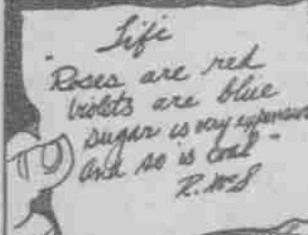 Life
"Roses are red
Violets are blue
Sugar is very expensive
And so is coal"
R. McS